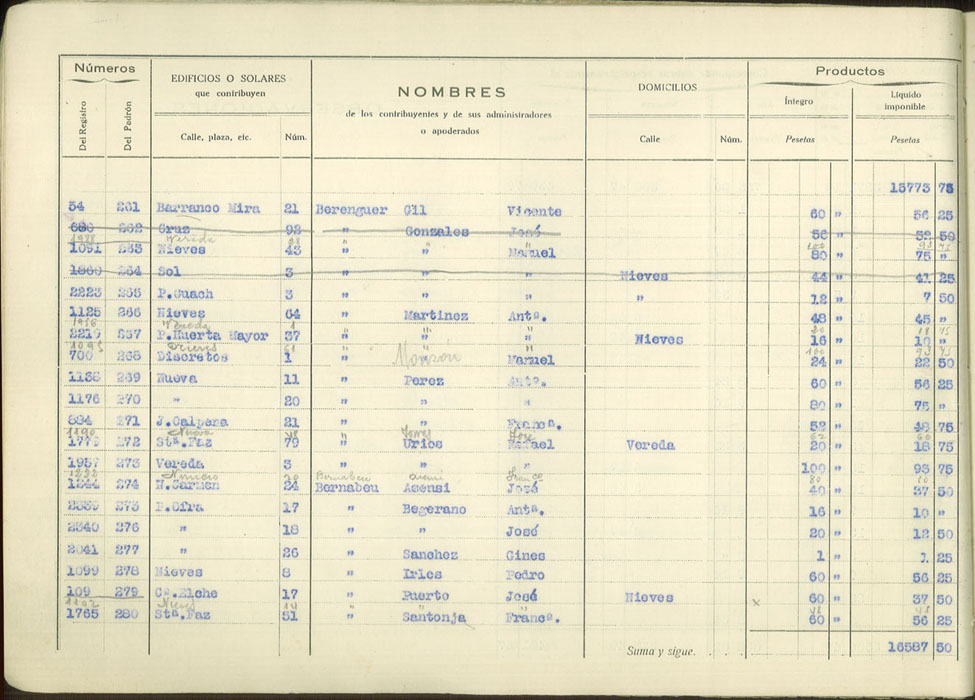 Números EDIFICIOS O SOLARES que contribuyen NOMBRES de los contribuyentes y de sus administradores o apoderados DOMICILIOS Productos
Del Registro Del Padrón Calle, plaza, etc. Núm. Calle Núm. Íntegro Pesetas Líquido imponible Pesetas
15773 75
54 261 Barranco Mira 21 Berenguer Gil Vicente 60 " 56 25
262 Cruz 92 " Gonzales José 56 " 52 50
Vereda 100 93 75
1051 263 Nieves 43 " " Manuel 80 " 75 "
1860 264 Sol 3 " " " Nieves 44 " 41 25
2223 265 P.Guach 3 " " " " 12 " 7 50
1125 266 Nieves 64 " Martinez Antª. 48 " 45 "
1956 Vereda 1 " " " 20 18 75
2219 267 P.Huerta Mayor 37 " " " Nieves 16 " 10 "
1095 Nieves 61 100 93 75
700 268 Discretos 1 " Monzón Manuel 24 " 22 50
1138 269 Nueva 11 " Perez Antª. 60 " 56 25
1176 270 " 20 " " " 80 " 75 "
834 271 J.Calpena 21 " " Francª. 52 " 48 75
1190 Nueva " Torres José
1779 272 Stª.Faz 79 " Urios Rafael Vereda 20 " 18 75
1957 273 Vereda 3 " " " 100 " 93 75
Bernabeu Asensi Francº 80
1244 274 N.Carmen 24 Bernabeu Asensi José 40 " 37 50
2339 275 P.Cfra 17 " Begerano Antª. 16 " 10 "
2340 276 " 18 " " José 20 " 12 50
2341 277 " 26 " Sanchez Gines 1 " 1 25
1099 278 Nieves 8 " Irles Pedro 60 " 56 25
109 279 Cª.Elche 17 " Puerto José Nieves x 60 " 37 50
1102 Nieves 14 " " " 48 45
1765 280 Stª.Faz 51 " Santonja Francª. 60 " 56 25
Suma y sigue. . . . 16587 50